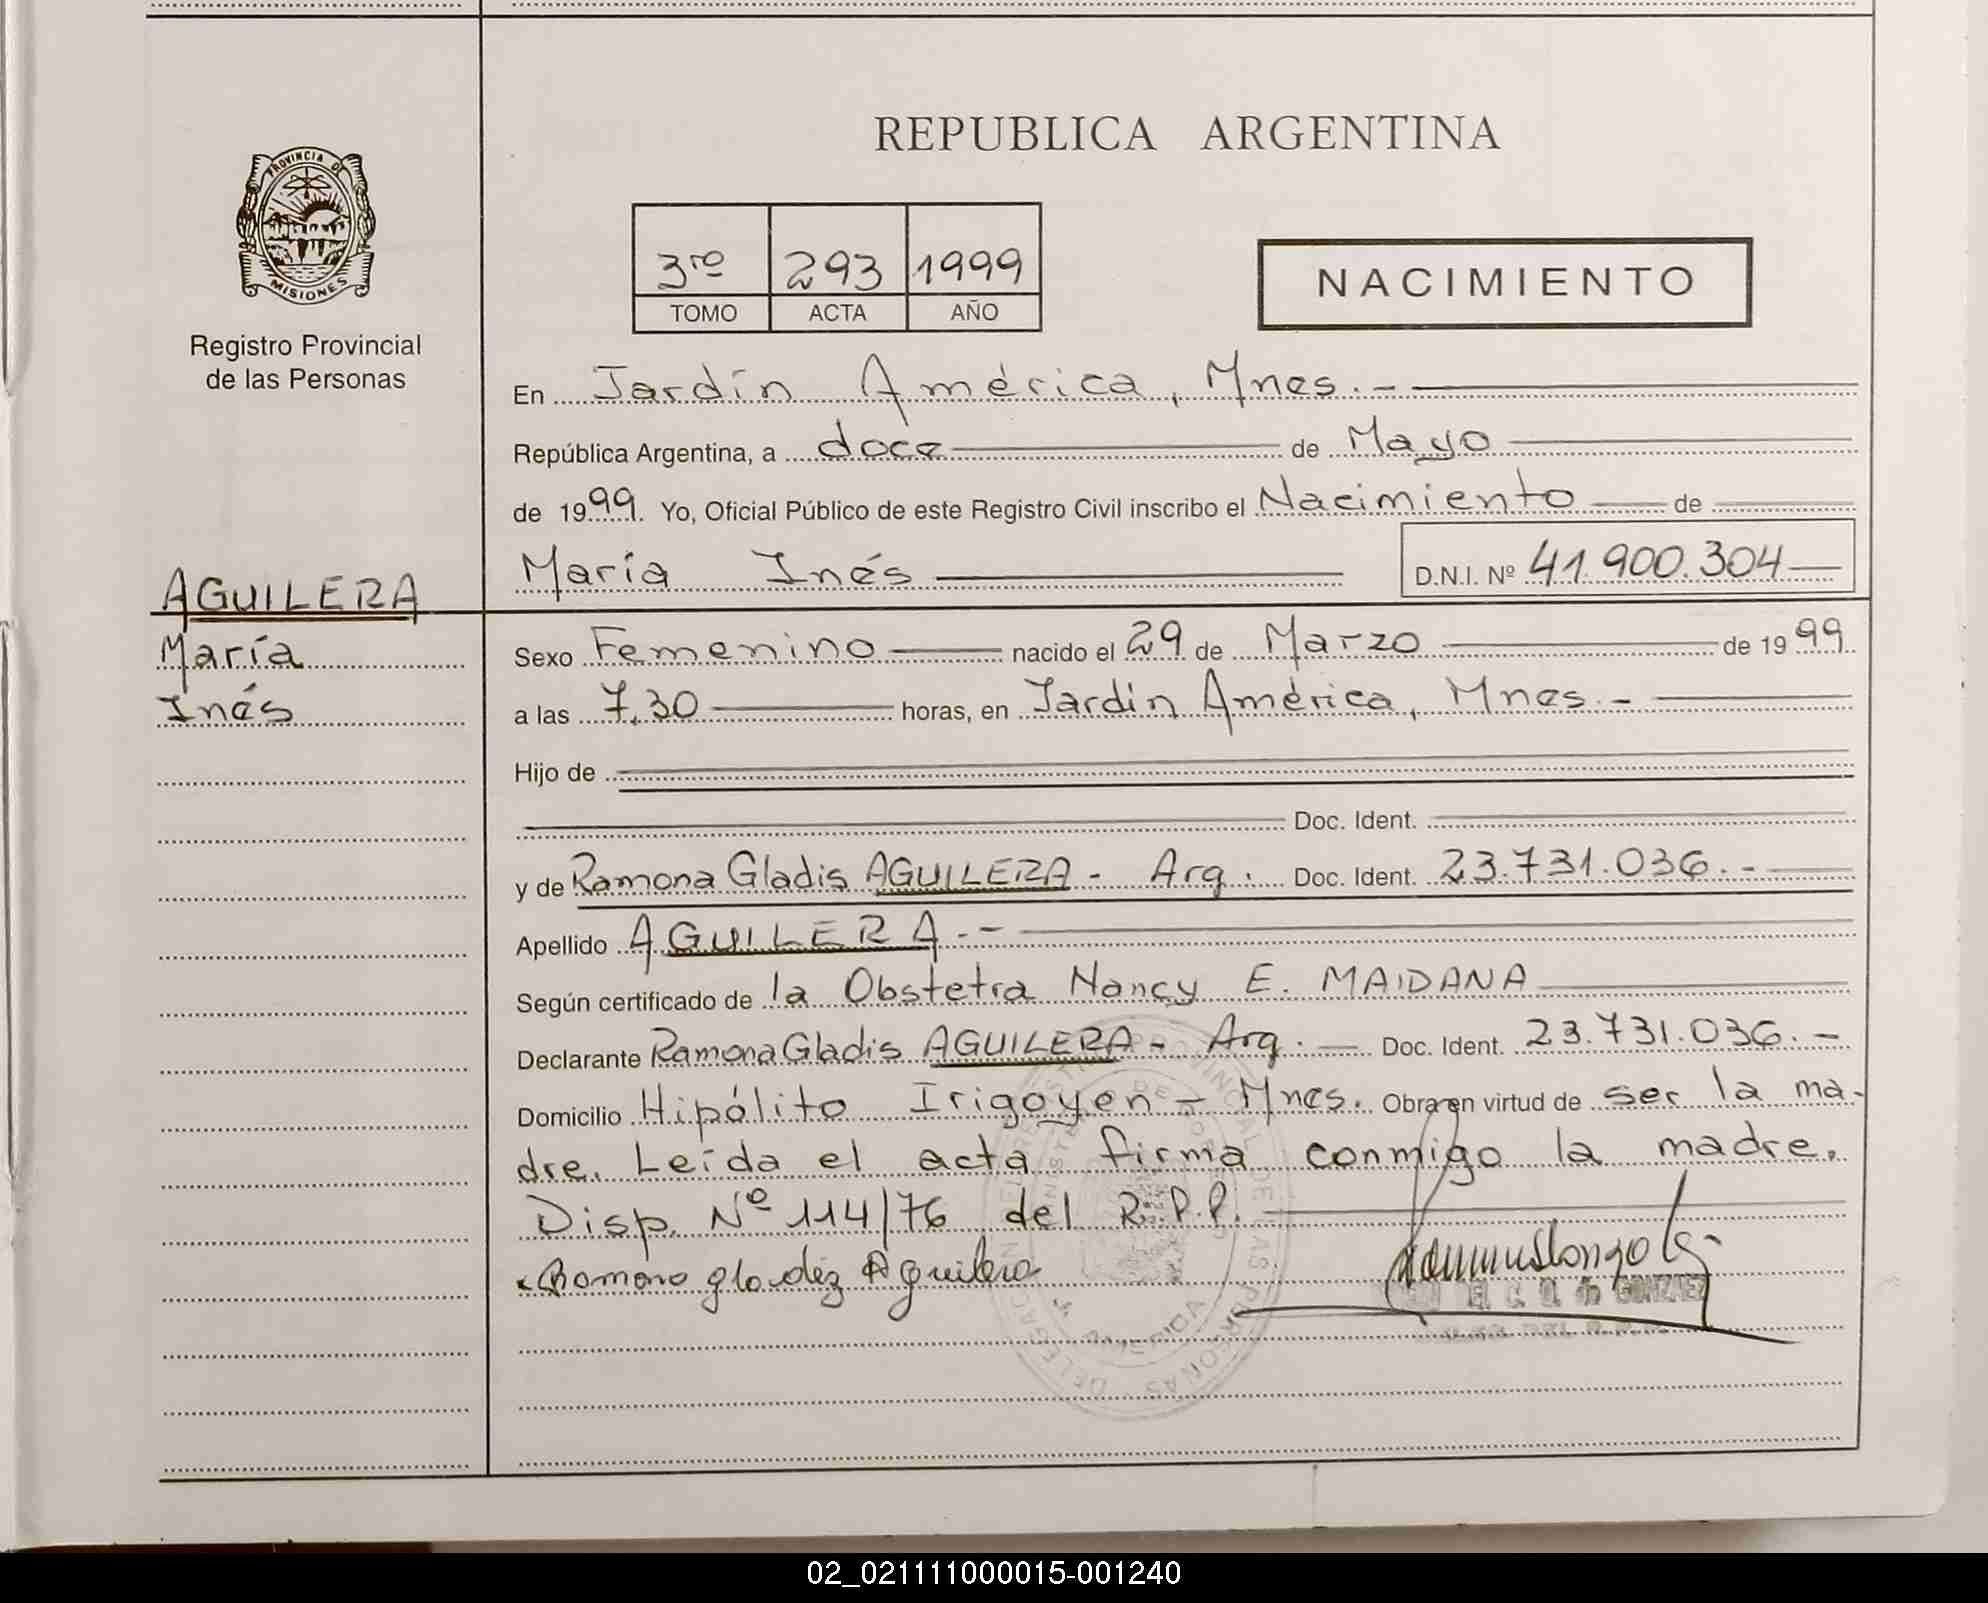 REPUBLICA ARGENTINA
PROVINCIA DE
MISIONES
Registro Provincial
de las Personas
3ro 293 1999
TOMO ACTA AÑO
NACIMIENTO
En Jardín América, Mnes.-
República Argentina, a doce de Mayo
de 1999. Yo, Oficial Público de este Registro Civil inscribo el Nacimiento de
María Inés D.N.I. Nº 41.900.304
AGUILERA
María
Inés
Sexo Femenino nacido el 29 de Marzo de 1999
a las 7.30 horas, en Jardín América, Mnes.-
Hijo de
Doc. Ident.
y de Ramona Gladis AGUILERA - Arg. Doc. Ident. 23.731.036.-
Apellido AGUILERA.-
Según certificado de la Obstetra Nancy E. MAIDANA
Declarante Ramona Gladis AGUILERA - Arg. Doc. Ident. 23.731.036.-
Domicilio Hipólito Irigoyen - Mnes. Obra en virtud de ser la ma-
dre. Leída el acta firma conmigo la madre.
Disp. Nº 114/76 del R.P.P.
Romona gladez Aguilera
de GONZALEZ
02_021111000015-001240